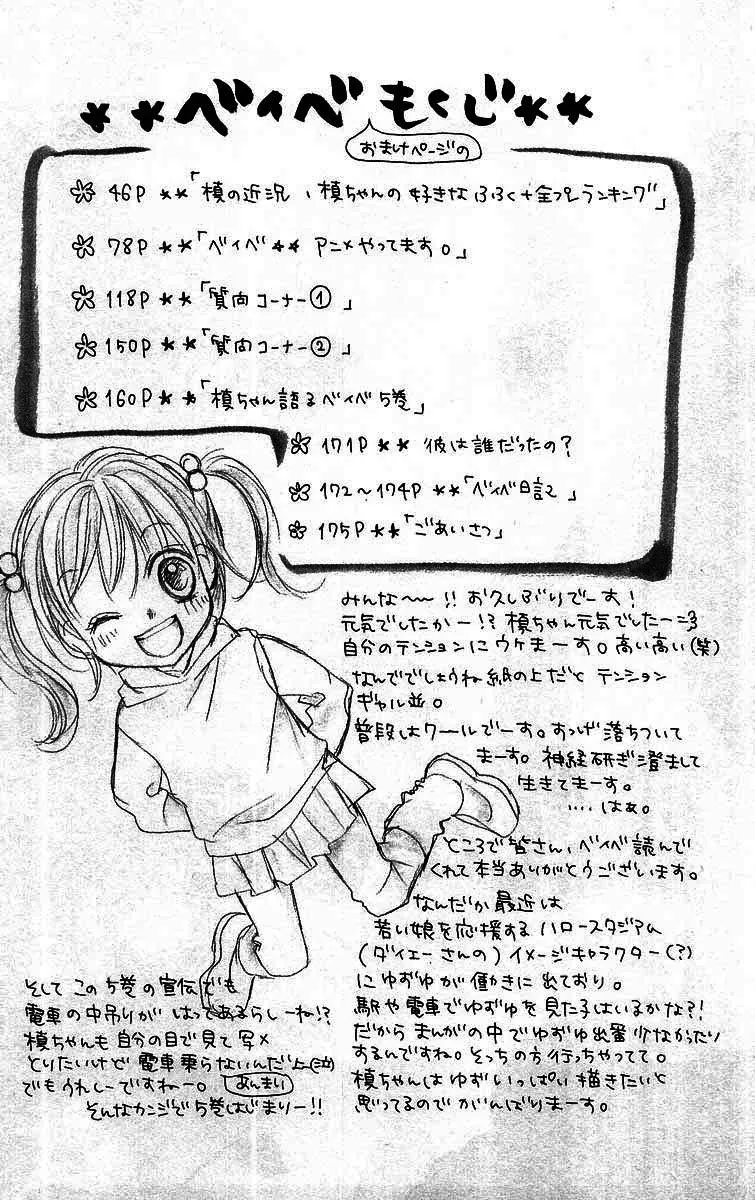 **ベイベもくじ**
おまけページの
46P **「槙の近況、槙ちゃんの好きなふく+全プレランキング」
78P **「ベイベ** アニメやってます。」
118P **「質問コーナー①」
150P **「質問コーナー②」
160P **「槙ちゃん語るベイベ5巻」
171P ** 彼は誰だったの?
172〜174P **「ベイベ日記」
175P **「ごあいさつ」
みんな〜!!お久しぶりでーす!
元気でしたかー!?槙ちゃん元気でしたー
自分のテンションにウケまーす。高い高い(笑)
なんででしょうね紙の上だとテンション
ギャル並。
普段はクールでーす。すっげ落ちついて
まーす。神経研ぎ澄まして
生きてまーす。
‥‥はぁ。
ところで皆さん、ベイベ読んで
くれて本当ありがとうございます。
なんだか最近は
若い娘を応援するハロースタジアム
(ダイエーさんの)イメージキャラクター(?)
にゆずゆが働きに出ており。
駅や電車でゆずゆを見た子はいるかな?!
だからまんがの中でゆずゆ出番少なかったり
するんですね。そっちの方行っちゃってて。
槙ちゃんはゆずいっぱい描きたいと
思ってるのでがんばりまーす。
そしてこの5巻の宣伝でも
電車の中吊りがはってあるらしーね!?
槙ちゃんも自分の目で見て写メ
とりたいけど電車乗らないんだよ(泣)
あんまり
でもうれしーですねー。
そんなカンジで5巻はじまりー!!